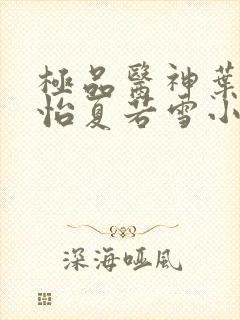 極品醫神葉
怡夏若雪小
深海啞風